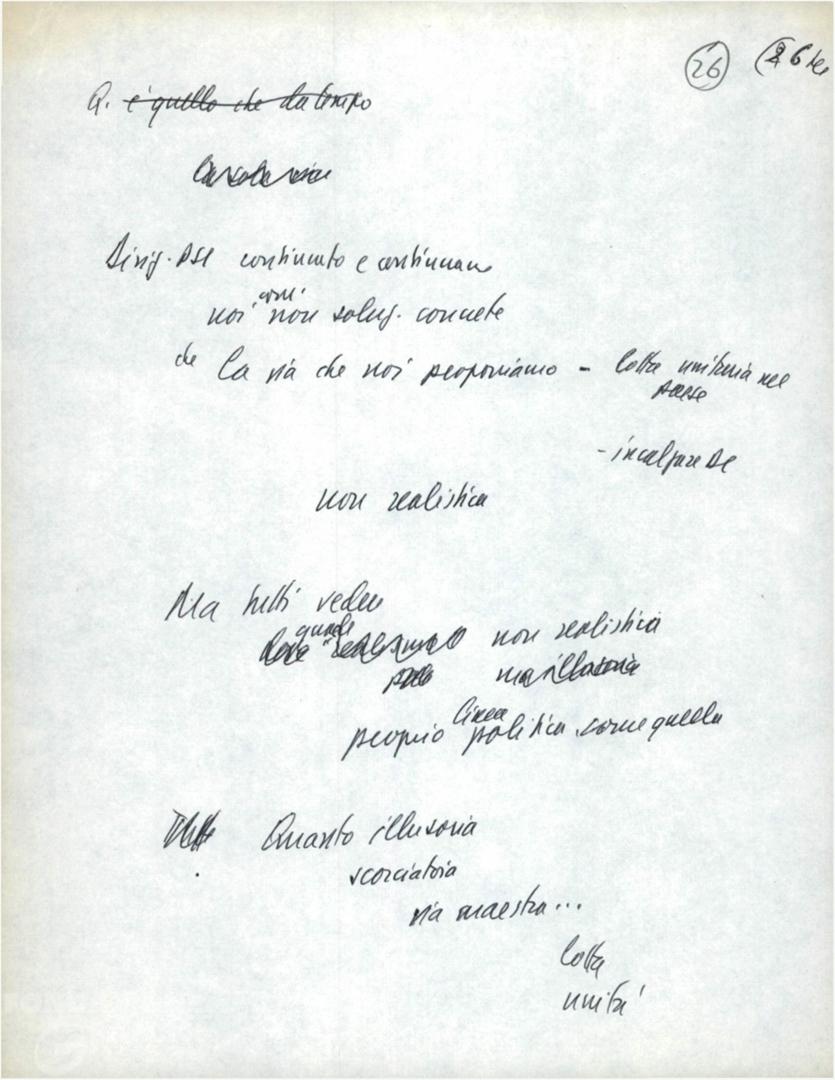 26 (26 ter
Q. è quello che da tempo
La soluzione
Dirig. PSI continuato e continuano
comi
noi non soluz. concrete
che la via che noi proponiamo - lotta unitaria nel
paese
- incalzare DC
non realistica
Ma tutti vedere
quale
non realistica
ma illusoria
linea
proprio politica come quella
Quanto illusoria
scorciatoia
via maestra...
lotta
unità